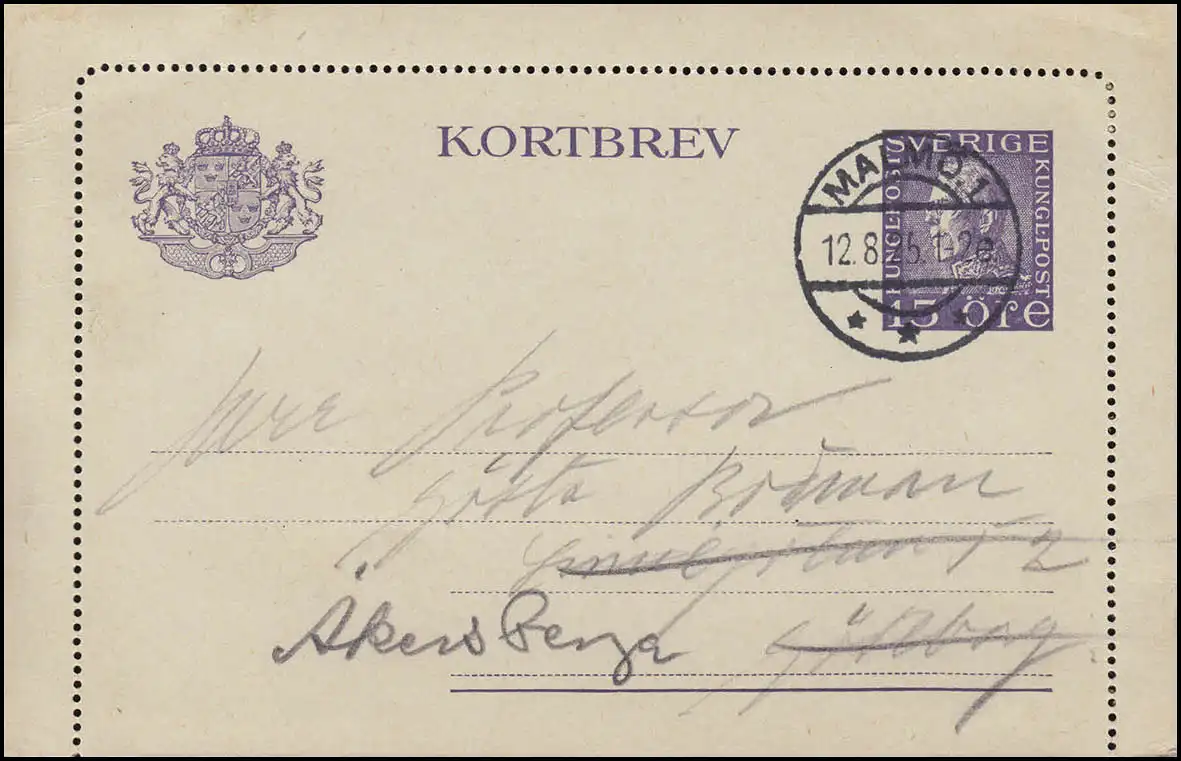 KORTBREV
SVERIGE
KUNGL. POST
KUNGL. POST
15 öre
MALMÖ.1
12.8.25.1-2e.
Herr Professor
Gösta Bodman
52
Göteborg.
Åkers Berga